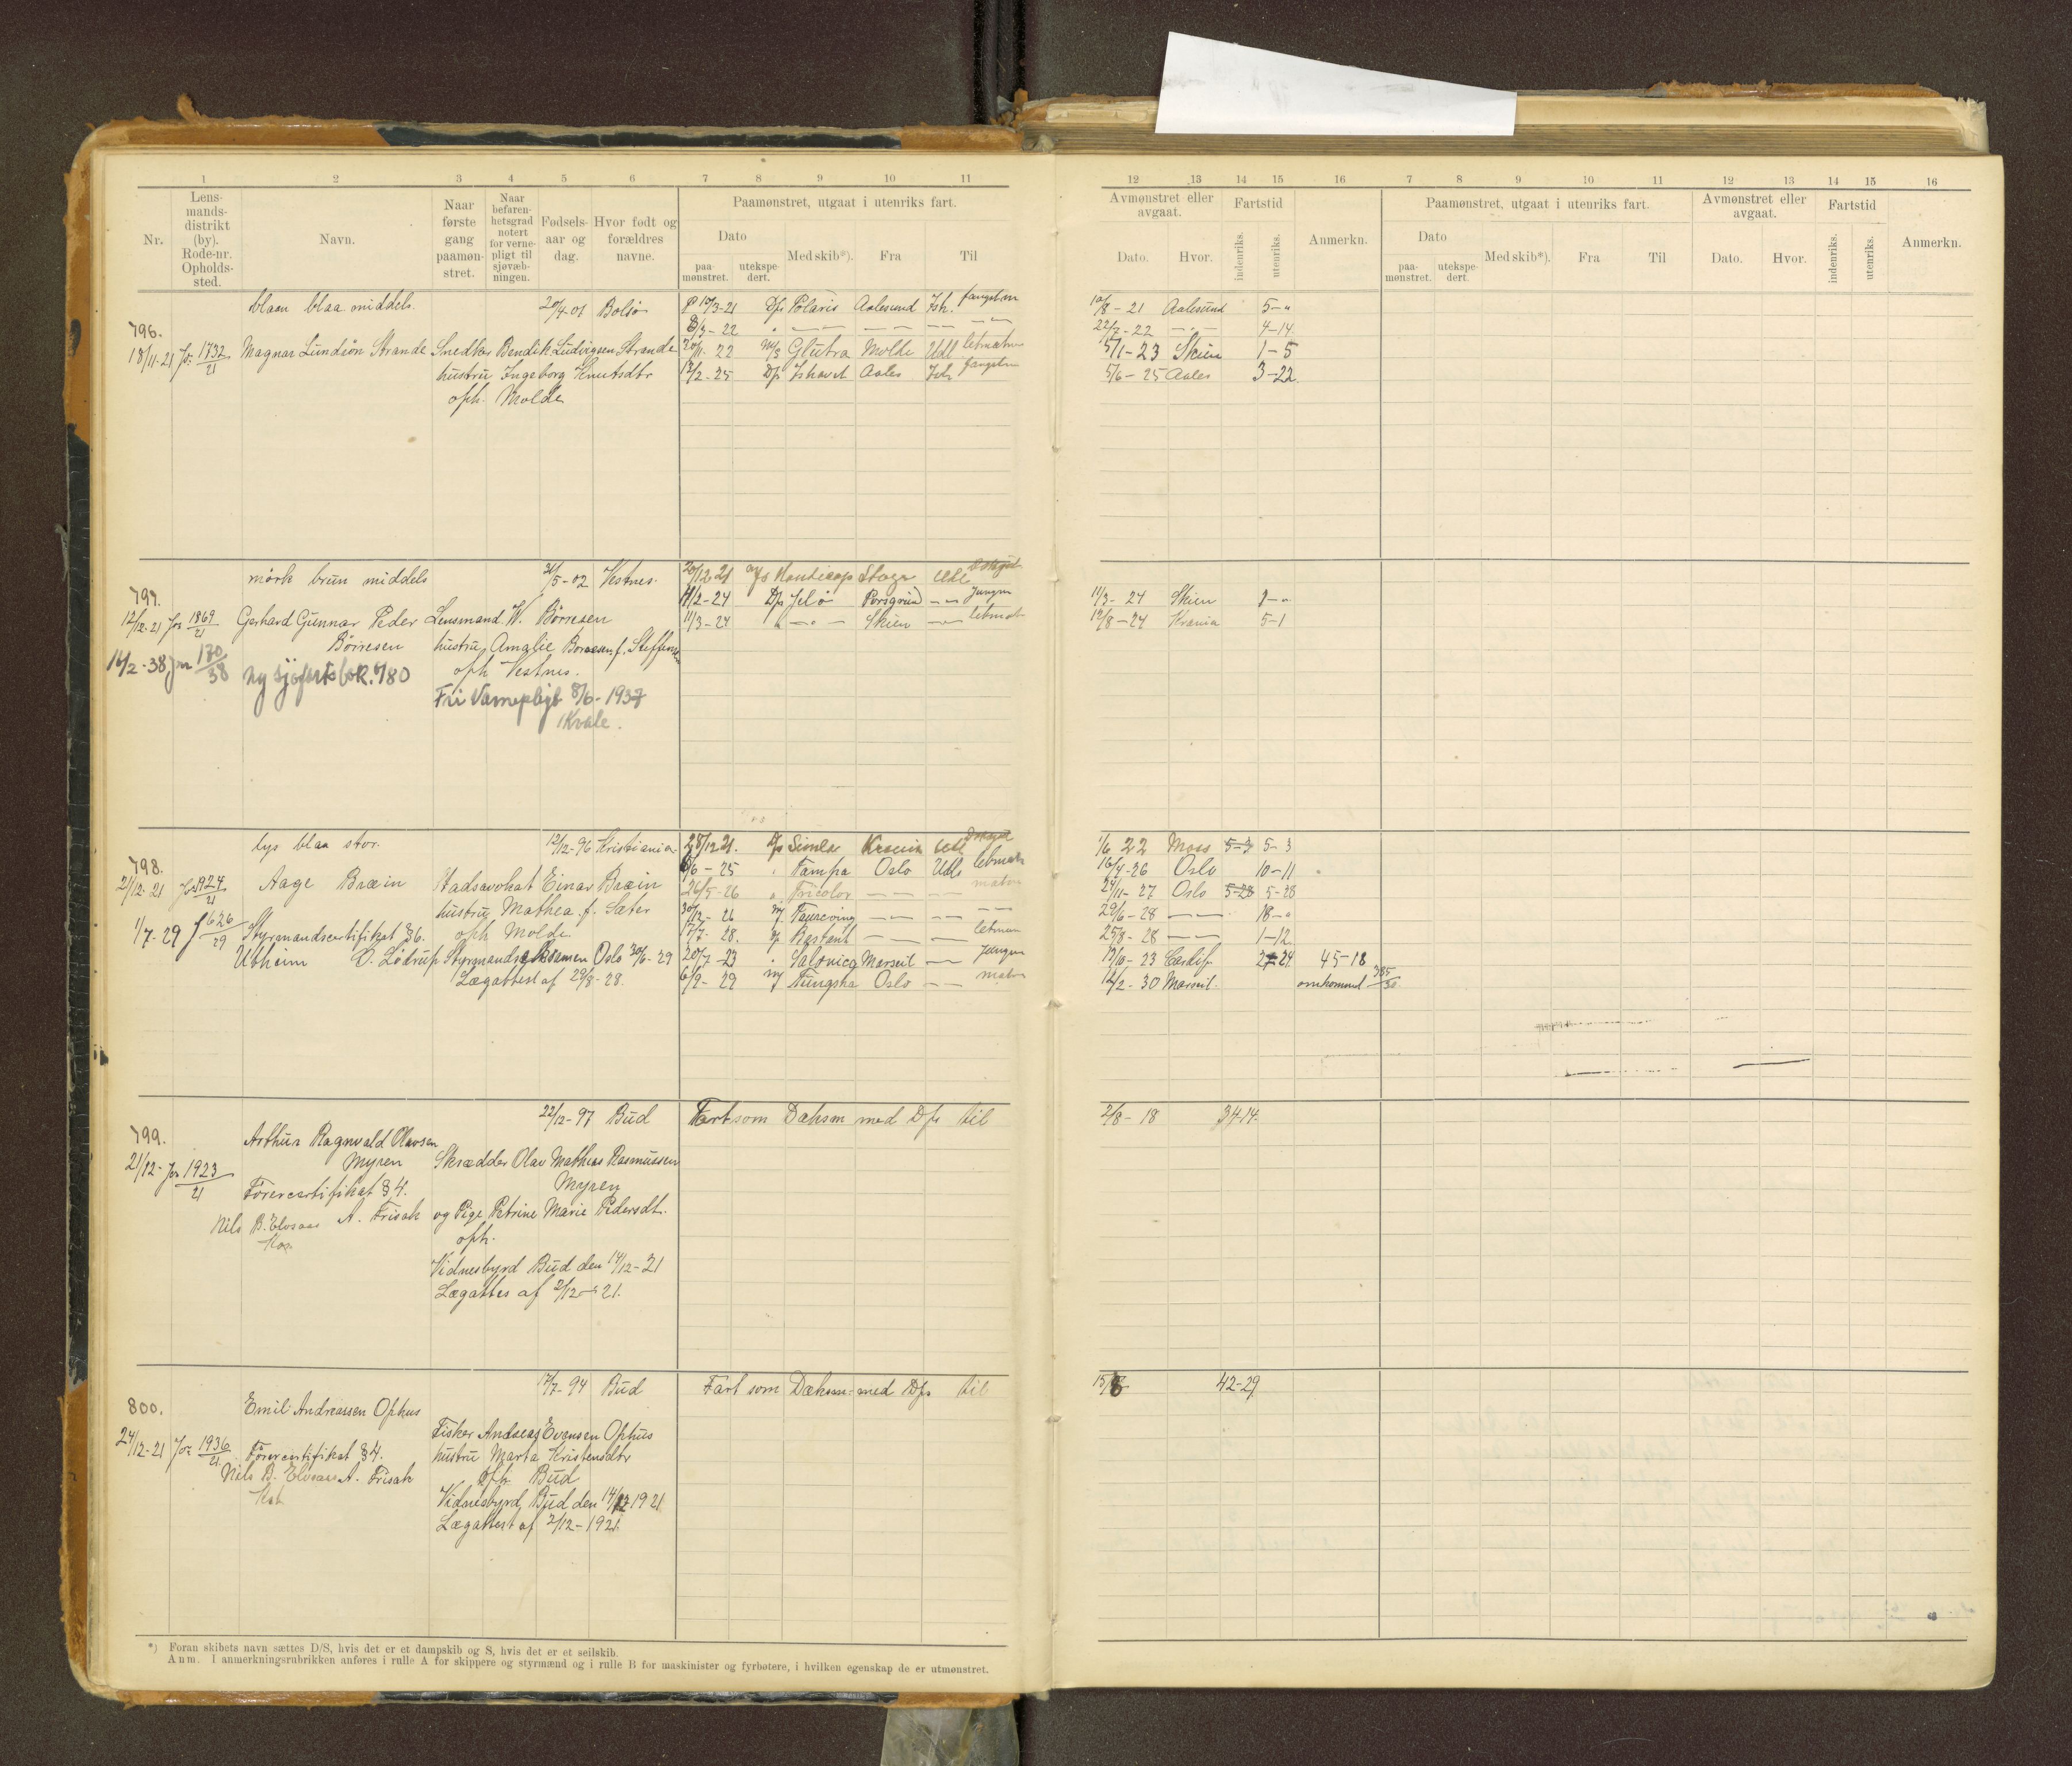 1 2 3 4 5 6 7 8 9 10 11
Nr.
Lens-
mands-
distrikt
(by).
Rode-nr.
Opholds-
sted.
Navn.
Naar
første
gang
paamøn-
stret.
Naar
befaren-
hetsgrad
notert
for verne-
pligt til
sjøvæb-
ningen.
Fødsels-
aar og
dag.
Hvor født og
forældres
navne.
Paamønstret, utgaat i utenriks fart.
Dato
paa-
mønstret.
utekspe-
dert.
Med skib*).
Fra
Til
blaan blaa middels. 20/4-01 Bolsø
796.
18/11-21 Jr. 1732/21 Magnar Lundsön Strande Snedker Bendik Ludvigsen Strande
hustru Ingeborg Knutsdtr
oph. Molde
P 10/3-21 D/s Polaris Aalesund Ish. fangstm
8/3-22 " — — — — — —
20/11-22 M/s Glutra Molde Udl letmatr
12/2-25 D/s Ishavet Aales Ish fangstm
mörk brun middels 31/5-02 Vestnes.
797.
12/12-21 Jr. 1869/21 Gerhard Gunnar Peder Lensmand W. Börresen
Börresen hustru Amalie Börresen f. Steffensen
oph Vestnes.
14/2-38 Jnr 170/38 ny sjöfartsbok. 480
Fri Vernepligt 8/6-1937
Kvale.
20/12 21 M/s Handicap Udl
11/2-24 D/s Jelö Porsgrund — Jungm
11/3-24 " — " — Skien — letmatr
lys blaa stor. 12/12-96 Kristiania
798.
21/12-21 Jr 1924/21 Aage Bræin Stadsavokat Einar Bræin
hustru Mathea f. Sæter
oph Molde
1/7-29 J 626/29 Styrmandscertifikat §6.
Utheim O. Lödrup Styrmandseksamen Oslo 30/6-29
Lægattest af 29/8-28.
28/12 21. D/s Simla Krania Udl
6/6-25 " Tampa Oslo Udl letmatr
26/5-26 " Tricolor — — matr
30/12-26 — — — —
17/7-28. D/s Bastant — — letmatr
20/7-23 " Salonica Marseil — Jungm
6/9-29 M/ Tungsha Oslo — matr
799.
21/12- Jr 1923/21 Arthur Ragnvald Olavsen
Myren
22/12-97 Bud
Skrædder Olav Mathias Rasmussen
Myren
Förercertifikat §4.
Nils B. Elvsaas A. Frisak og Pige Petrine Marie Pedersdt.
oph.
Vidnesbyrd Bud den 14/12-21
Lægattes af 2/12-21.
Fart som Dæksm med D/s til
800.
24/12-21 Jr 1936/21 Emil Andreassen Ophus
7/7-94 Bud
Fisker Andreas Evensen Ophus
Förercertifikat §4. hustru Marta Kristensdtr
Nils B. Elvsaas A. Frisak oph. Bud
Vidnesbyrd Bud den 14/12 1921
Lægattest af 2/12-1921.
Fart som Dæksm med D/s til
*) Foran skibets navn sættes D/S, hvis det er et dampskib og S, hvis det er et seilskib.
Anm. I anmerkningsrubrikken anføres i rulle A for skippere og styrmænd og i rulle B for maskinister og fyrbøtere, i hvilken egenskap de er utmønstret.
12 13 14 15 16 7 8 9 10 11 12 13 14 15 16
Avmønstret eller
avgaat.
Dato. Hvor.
Fartstid
indenriks. utenriks.
Anmerkn.
Paamønstret, utgaat i utenriks fart.
Dato
paa-
mønstret.
utekspe-
dert.
Med skib*). Fra Til
Avmønstret eller
avgaat.
Dato. Hvor.
Fartstid
indenriks. utenriks.
Anmerkn.
10/8-21 Aalesund 5-"
22/7-22 — " — 4-14
5/1-23 Skien 1-5
5/6-25 Aales 3-22
11/3-24 Skien 1-"
12/8-24 Krania 5-1
1/6 22 Moss 5-3 5-3
16/4-26 Oslo 10-11
24/11-27 Oslo 5-28 5-28
29/6-28 — — 18-"
25/8-28 — — 1-12
13/10-23 Cardif. 2-24 45-18
12/2-30 Marseil. omkommet 385/30
2/8-18 34 14
15/8 42-29